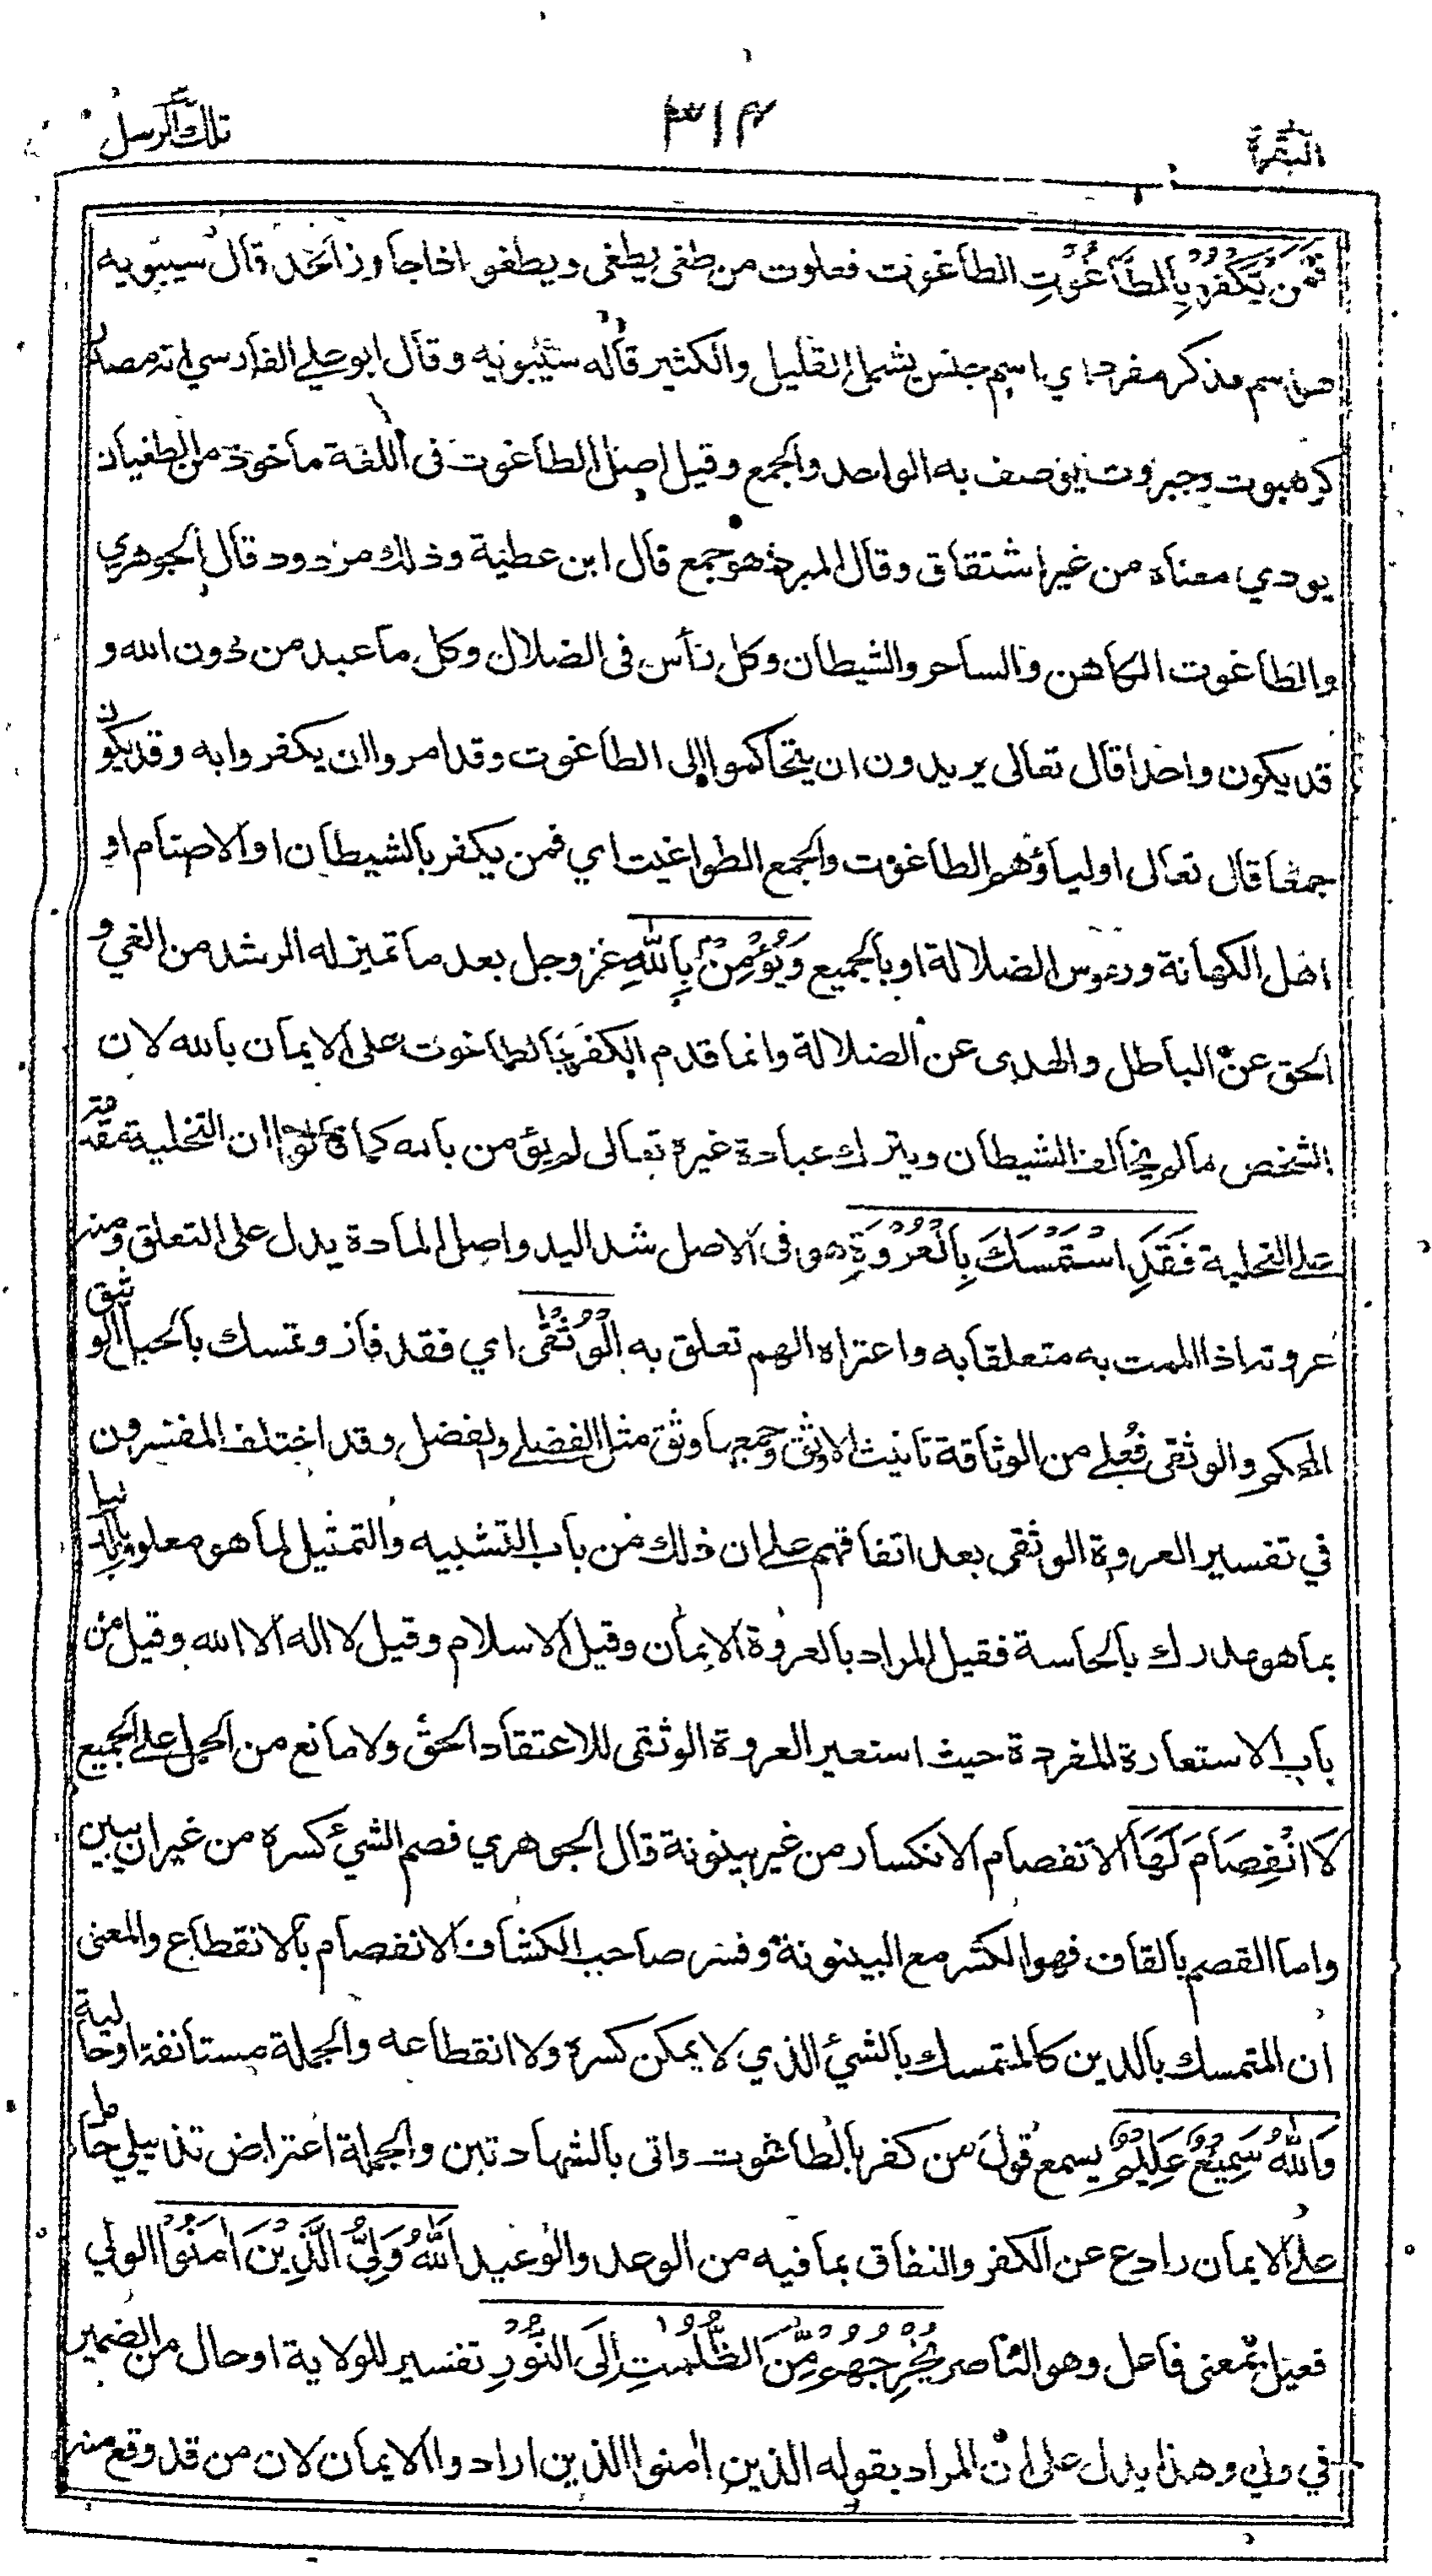 البقرة
٣١٣
تلك الرسل
فَمَنْ يَّكْفُرْ بِالطَّاغُوْتِ الطاغوت فعلوت من طغى يطغى ويطغو اذا جاوز الحد قال سيبويه
هو اسم مذكر مفرد اي اسم جنس يشمل القليل والكثير قاله سيبويه وقال ابو علي الفارسي انه مصدر
كرهبوت وجبروت يوصف به الواحد والجمع وقيل اصل الطاغوت فى اللغة ماخوذ من الطغيان
يودي معناه من غير اشتقاق وقال المبرد هو جمع قال ابن عطية وذلك مردود قال الجوهري
والطاغوت الكاهن والساحر والشيطان وكل رأس فى الضلال وكل ما عبد من دون الله و
قد يكون واحدا قال تعالى يريدون ان يتحاكموا الى الطاغوت وقد امروا ان يكفروا به وقد يكون
جمعا قال تعالى اولياؤهم الطاغوت والجمع الطواغيت اي فمن يكفر بالشيطان او الاصنام او
اهل الكهانة ورءوس الضلالة او بالجميع وَيُؤْمِنْ بِاللهِ عز وجل بعد ما تميز له الرشد من الغي و
الحق عن الباطل والهدى عن الضلالة وانما قدم الكفر بالطاغوت على الايمان بالله لان
الشخص ما لم يخالف الشيطان ويترك عبادة غيره تعالى لم يؤمن بالله كما قالوا ان التخلية مقدمة
على التحلية فَقَدِ اسْتَمْسَكَ بِالْعُرْوَةِ هو فى الاصل شد اليد واصل المادة يدل على التعلق ومنه
عروته اذا الممت به متعلقا به واعتراه الهم تعلق به الْوُثْقٰى اي فقد فاز وتمسك بالحبل الوثيق
المحكم والوثقى فُعلى من الوثاقة تانيث الاوثق وجمعها وثق مثل الفضلى والفضل وقد اختلف المفسرون
في تفسير العروة الوثقى بعد اتفاقهم على ان ذلك من باب التشبيه والتمثيل لما هو معلوم بالدليل
بما هو مدرك بالحاسة فقيل المراد بالعروة الايمان وقيل الاسلام وقيل لا اله الا الله وقيل من
باب الاستعارة المفردة حيث استعير العروة الوثقى للاعتقاد الحق ولا مانع من الحمل على الجميع
لَا انْفِصَامَ لَهَا الانفصام الانكسار من غير بينونة قال الجوهري فصم الشيء كسره من غير ان يبين
واما القصم بالقاف فهو الكسر مع البينونة وفسر صاحب الكشاف الانفصام بالانقطاع والمعنى
ان المتمسك بالدين كالمتمسك بالشيء الذي لا يمكن كسره ولا انقطاعه والجملة مستانفة او حالية
وَاللهُ سَمِيْعٌ عَلِيْمٌ يسمع قول من كفر بالطاغوت واتى بالشهادتين والجملة اعتراض تذييلي حامل
على الايمان رادع عن الكفر والنفاق بما فيه من الوعد والوعيد اَللهُ وَلِيُّ الَّذِيْنَ اٰمَنُوْا الولي
فعيل بمعنى فاعل وهو الناصر يُخْرِجُهُمْ مِّنَ الظُّلُمٰتِ اِلَى النُّوْرِ تفسير للولاية او حال من الضمير
في ولي وهذا يدل على ان المراد بقوله الذين اٰمنوا الذين ارادوا الايمان لان من قد وقع منه